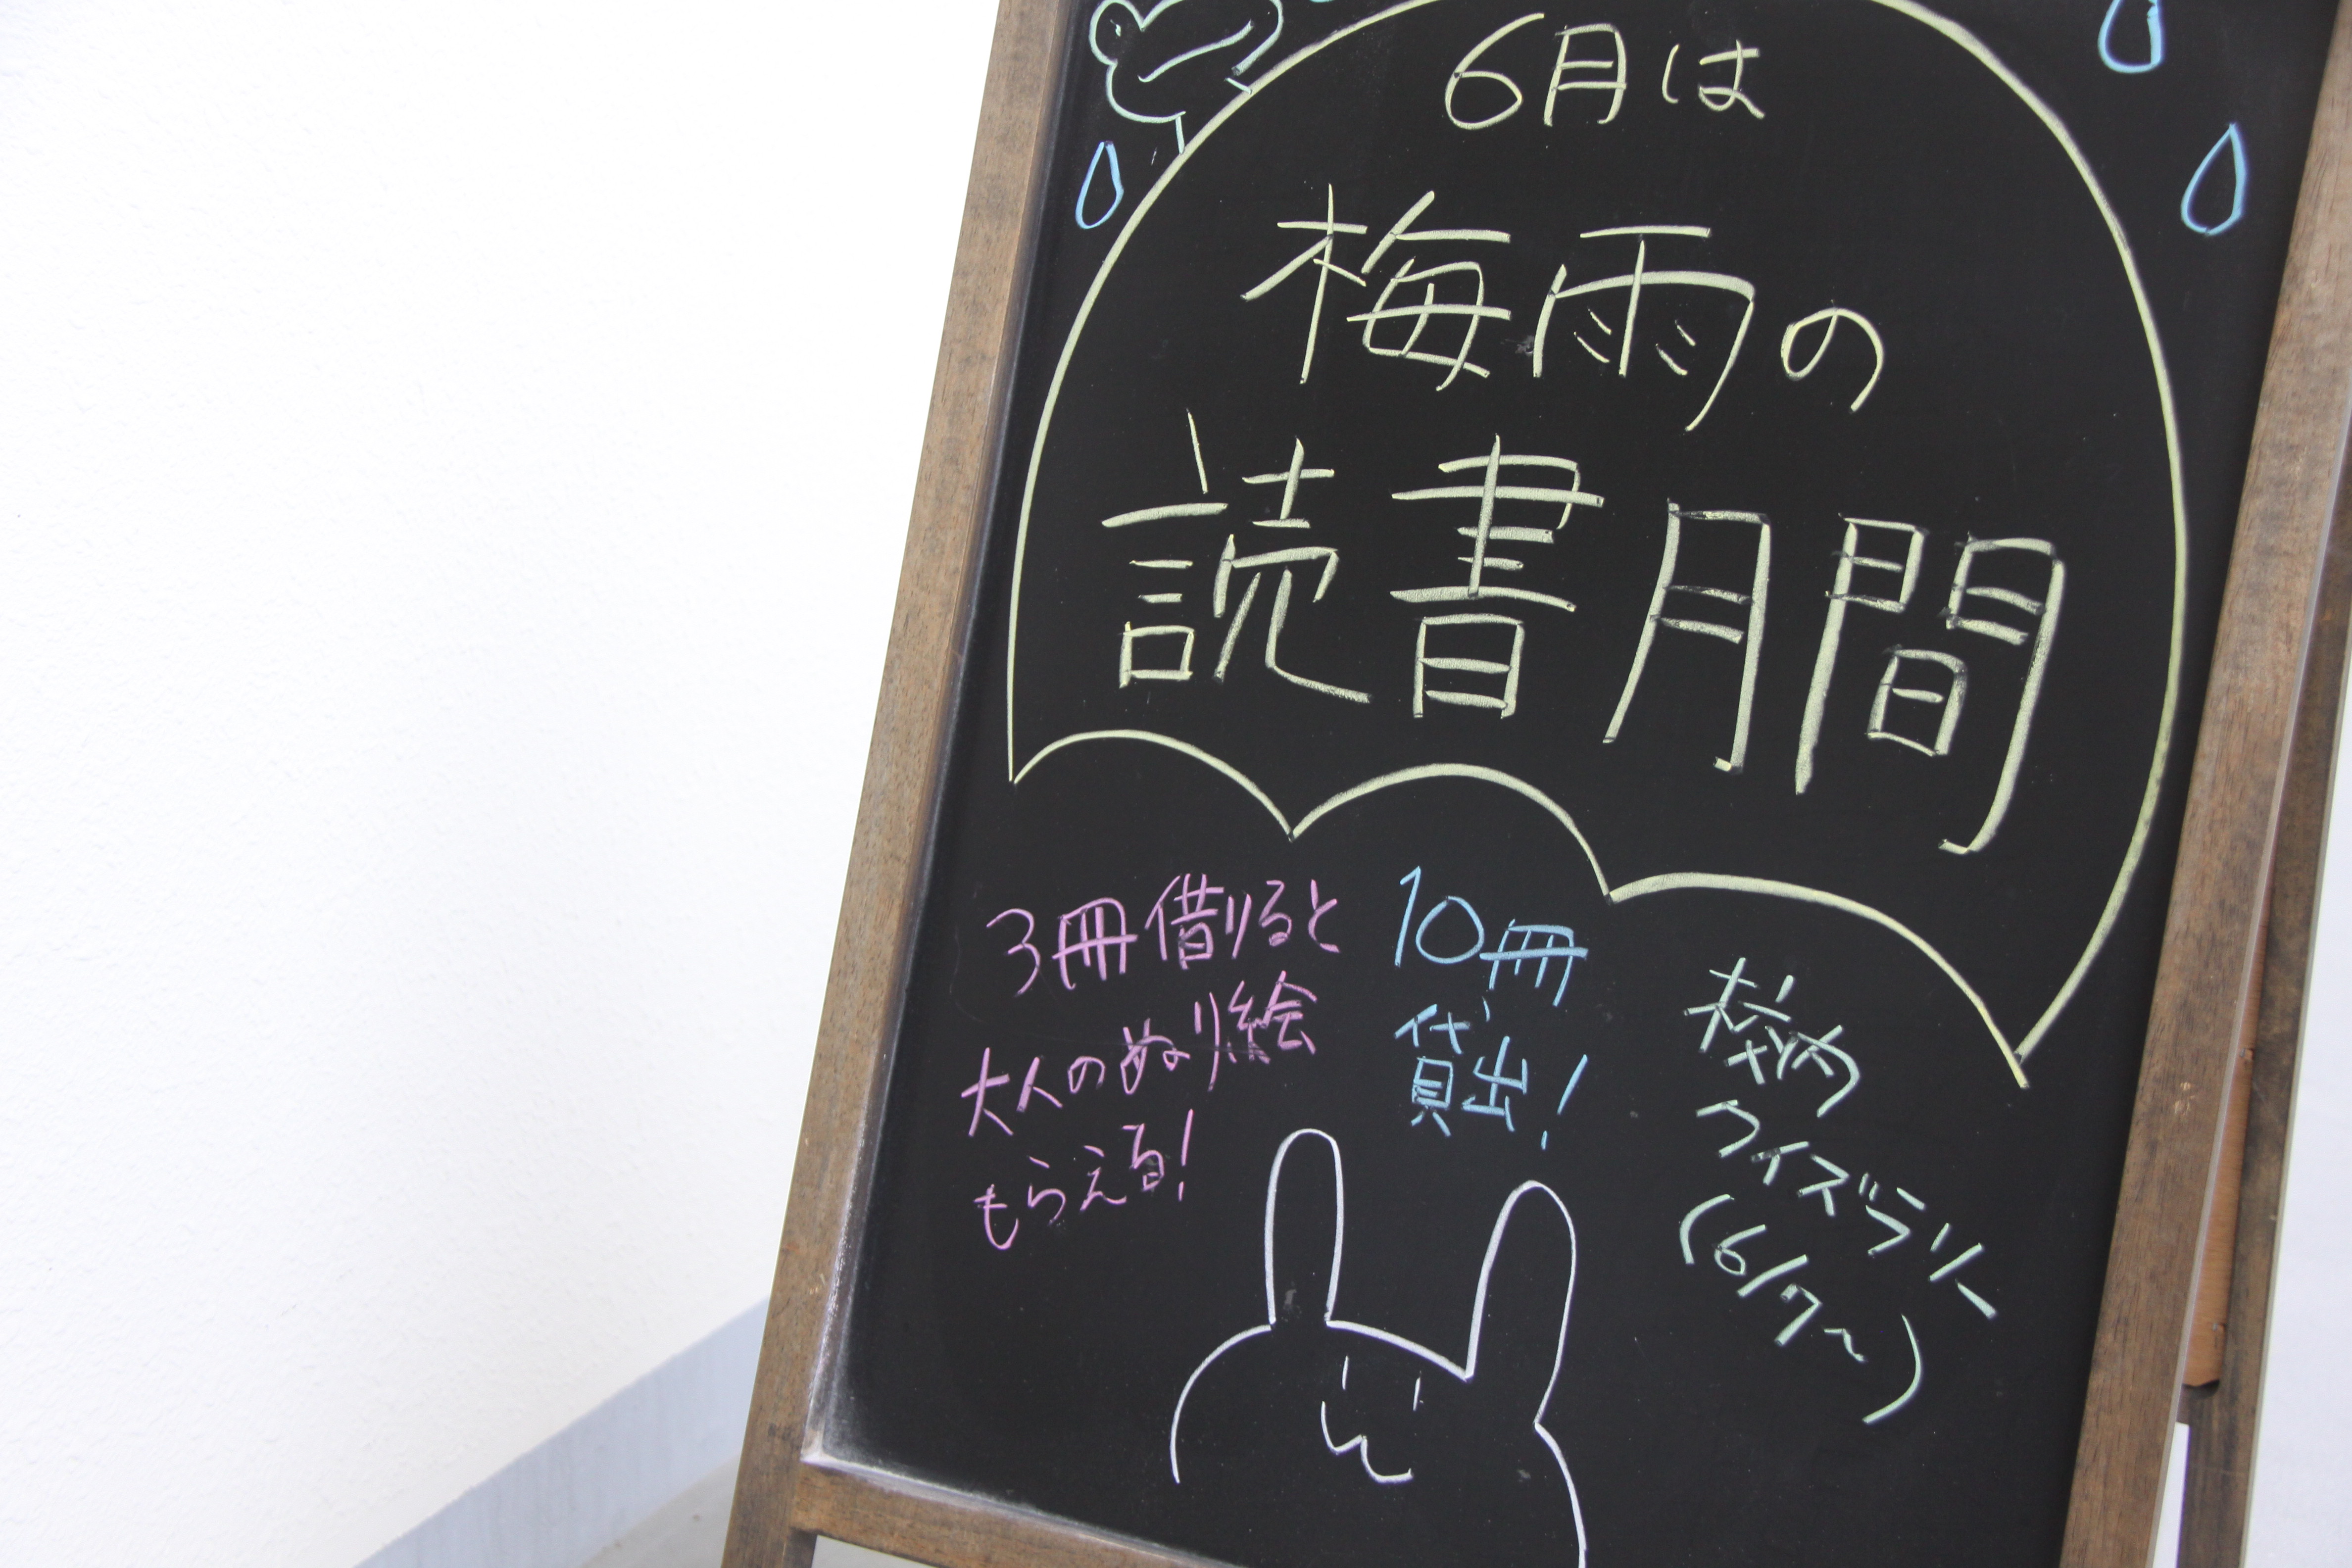 6月は
梅雨の
読書月間
3冊借りると
大人のぬり絵
もらえる!
10冊
貸出!
校内
クイズラリー
(6/7~)